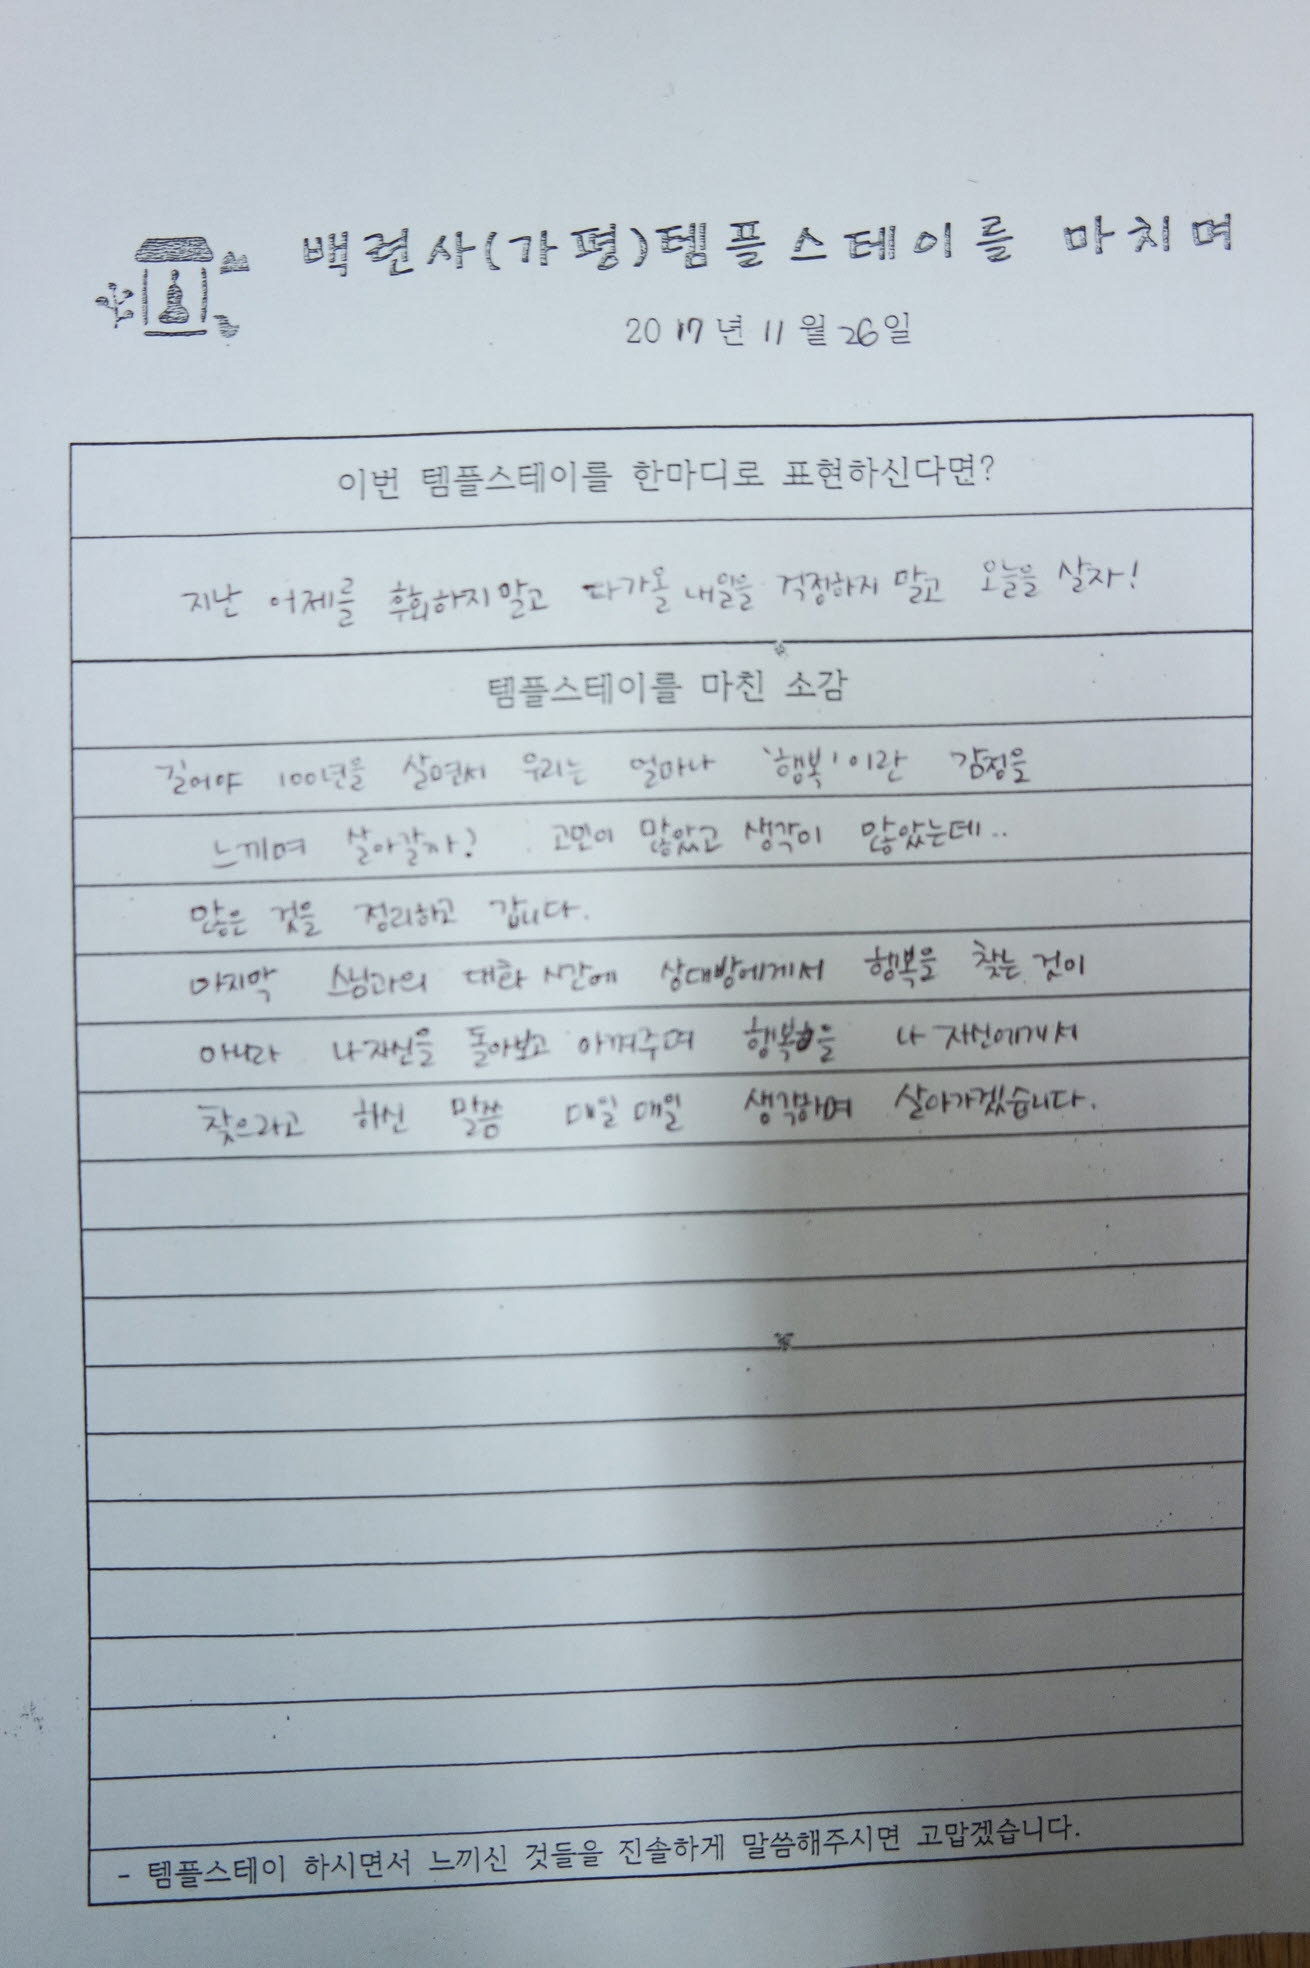 백련사(가평)템플스테이를 마치며
2017년 11월 26일
이번 템플스테이를 한마디로 표현하신다면?
지난 어제를 후회하지말고 다가올 내일을 걱정하지 말고 오늘을 살자!
템플스테이를 마친 소감
길어야 100년을 살면서 우리는 얼마나 '행복'이란 감정을
느끼며 살아갈까? 고민이 많았고 생각이 많았는데..
많은 것을 정리하고 갑니다.
마지막 스님과의 대화 시간에 상대방에게서 행복을 찾는 것이
아니라 나 자신을 돌아보고 아껴주며 행복을 나 자신에게서
찾으라고 하신 말씀 매일 매일 생각하며 살아가겠습니다.
- 템플스테이 하시면서 느끼신 것들을 진솔하게 말씀해주시면 고맙겠습니다.